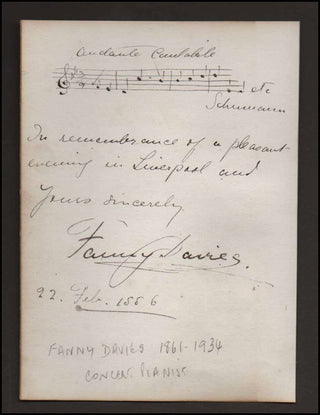 andante Cantabile
etc
Schumann
In remembrance of a pleasant
evening in Liverpool and
Yours sincerely
Fanny Davies.
22. Feb. 1886
FANNY DAVIES 1861-1934
CONCERT PIANIST